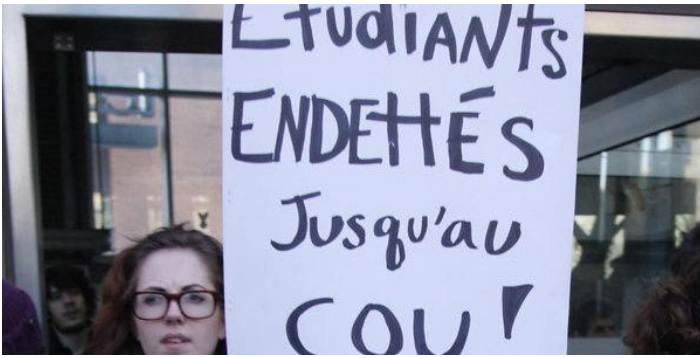 ÉtudiANts
ENDEttÉS
Jusqu'au
COU!